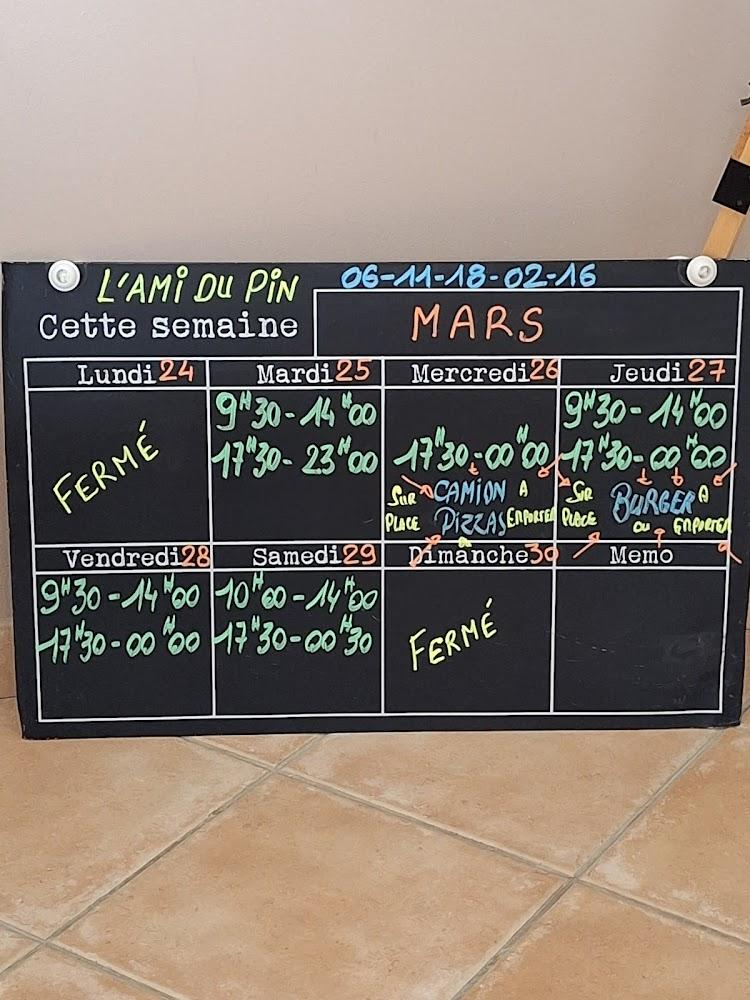 L'AMI DU PIN 06-11-18-02-16
Cette semaine MARS
Lundi 24
FERMÉ
Mardi 25
9H30 - 14H00
17H30 - 23H00
Mercredi 26
17H30 - 00H00
SUR PLACE CAMION PIZZAS A EMPORTER
Jeudi 27
9H30 - 14H00
17H30 - 00H00
SUR PLACE BURGER OU A EMPORTER
Vendredi 28
9H30 - 14H00
17H30 - 00H00
Samedi 29
10H00 - 14H00
17H30 - 00H30
Dimanche 30
FERMÉ
Memo